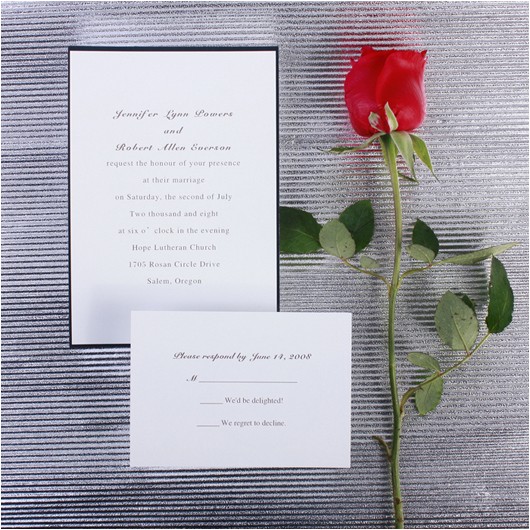 Jennifer Lynn Powers
and
Robert Allen Everson
request the honour of your presence
at their marriage
on Saturday, the second of July
Two thousand and eight
at six o’clock in the evening
Hope Lutheran Church
1705 Rosan Circle Drive
Salem, Oregon
Please respond by June 14, 2008
M
We'd be delighted!
We regret to decline.